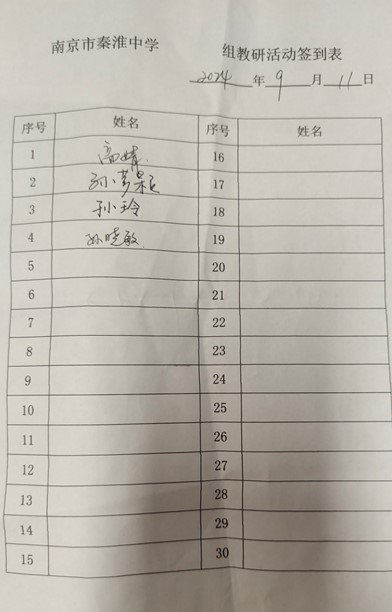 南京市秦淮中学 组教研活动签到表
2024 年 9 月 11 日
序号 姓名 序号 姓名
1 高婧 16
2 孙梦 17
3 孙玲 18
4 孙晓敏 19
5 20
6 21
7 22
8 23
9 24
10 25
11 26
12 27
13 28
14 29
15 30